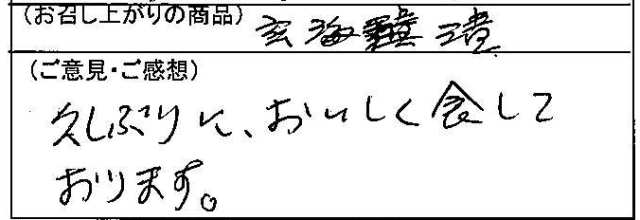 (お召し上がりの商品) 玄海漬
(ご意見・ご感想)
久しぶりに、おいしく食して
おります。